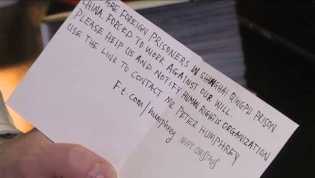 FOREIGN PRISONERS IN SHANGHAI QINGPU PRISON
CHINA FORCED TO WORK AGAINST OUR WILL.
PLEASE HELP US AND NOTIFY HUMAN RIGHTS ORGANIZATION
USE THE LINK TO CONTACT MR PETER HUMPHREY
Ft.com/humphrey